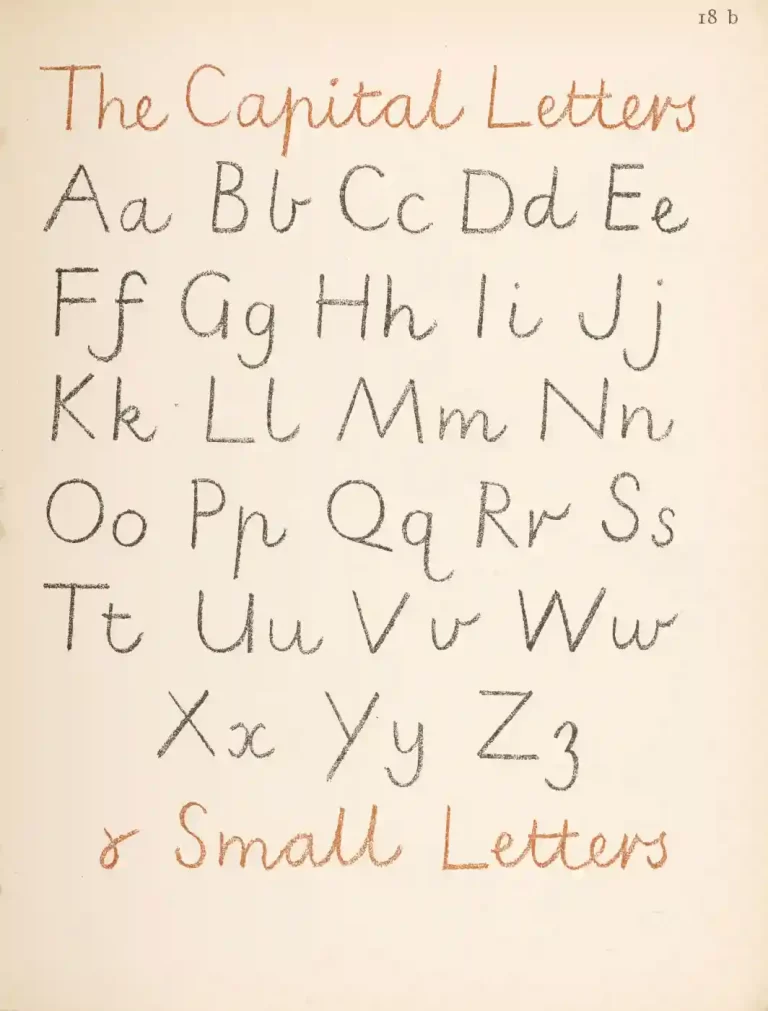 18 b
The Capital Letters
Aa Bb Cc Dd Ee
Ff Gg Hh Ii Jj
Kk Ll Mm Nn
Oo Pp Qq Rr Ss
Tt Uu Vv Ww
Xx Yy Zz
& Small Letters